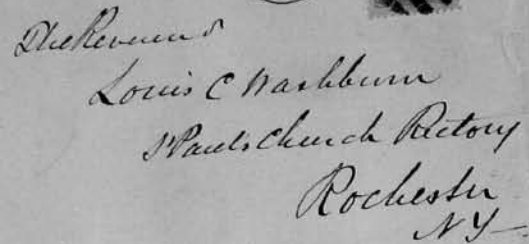 The Reverend
Louis C Washburn
St Pauls Church Rectory
Rochester
NY